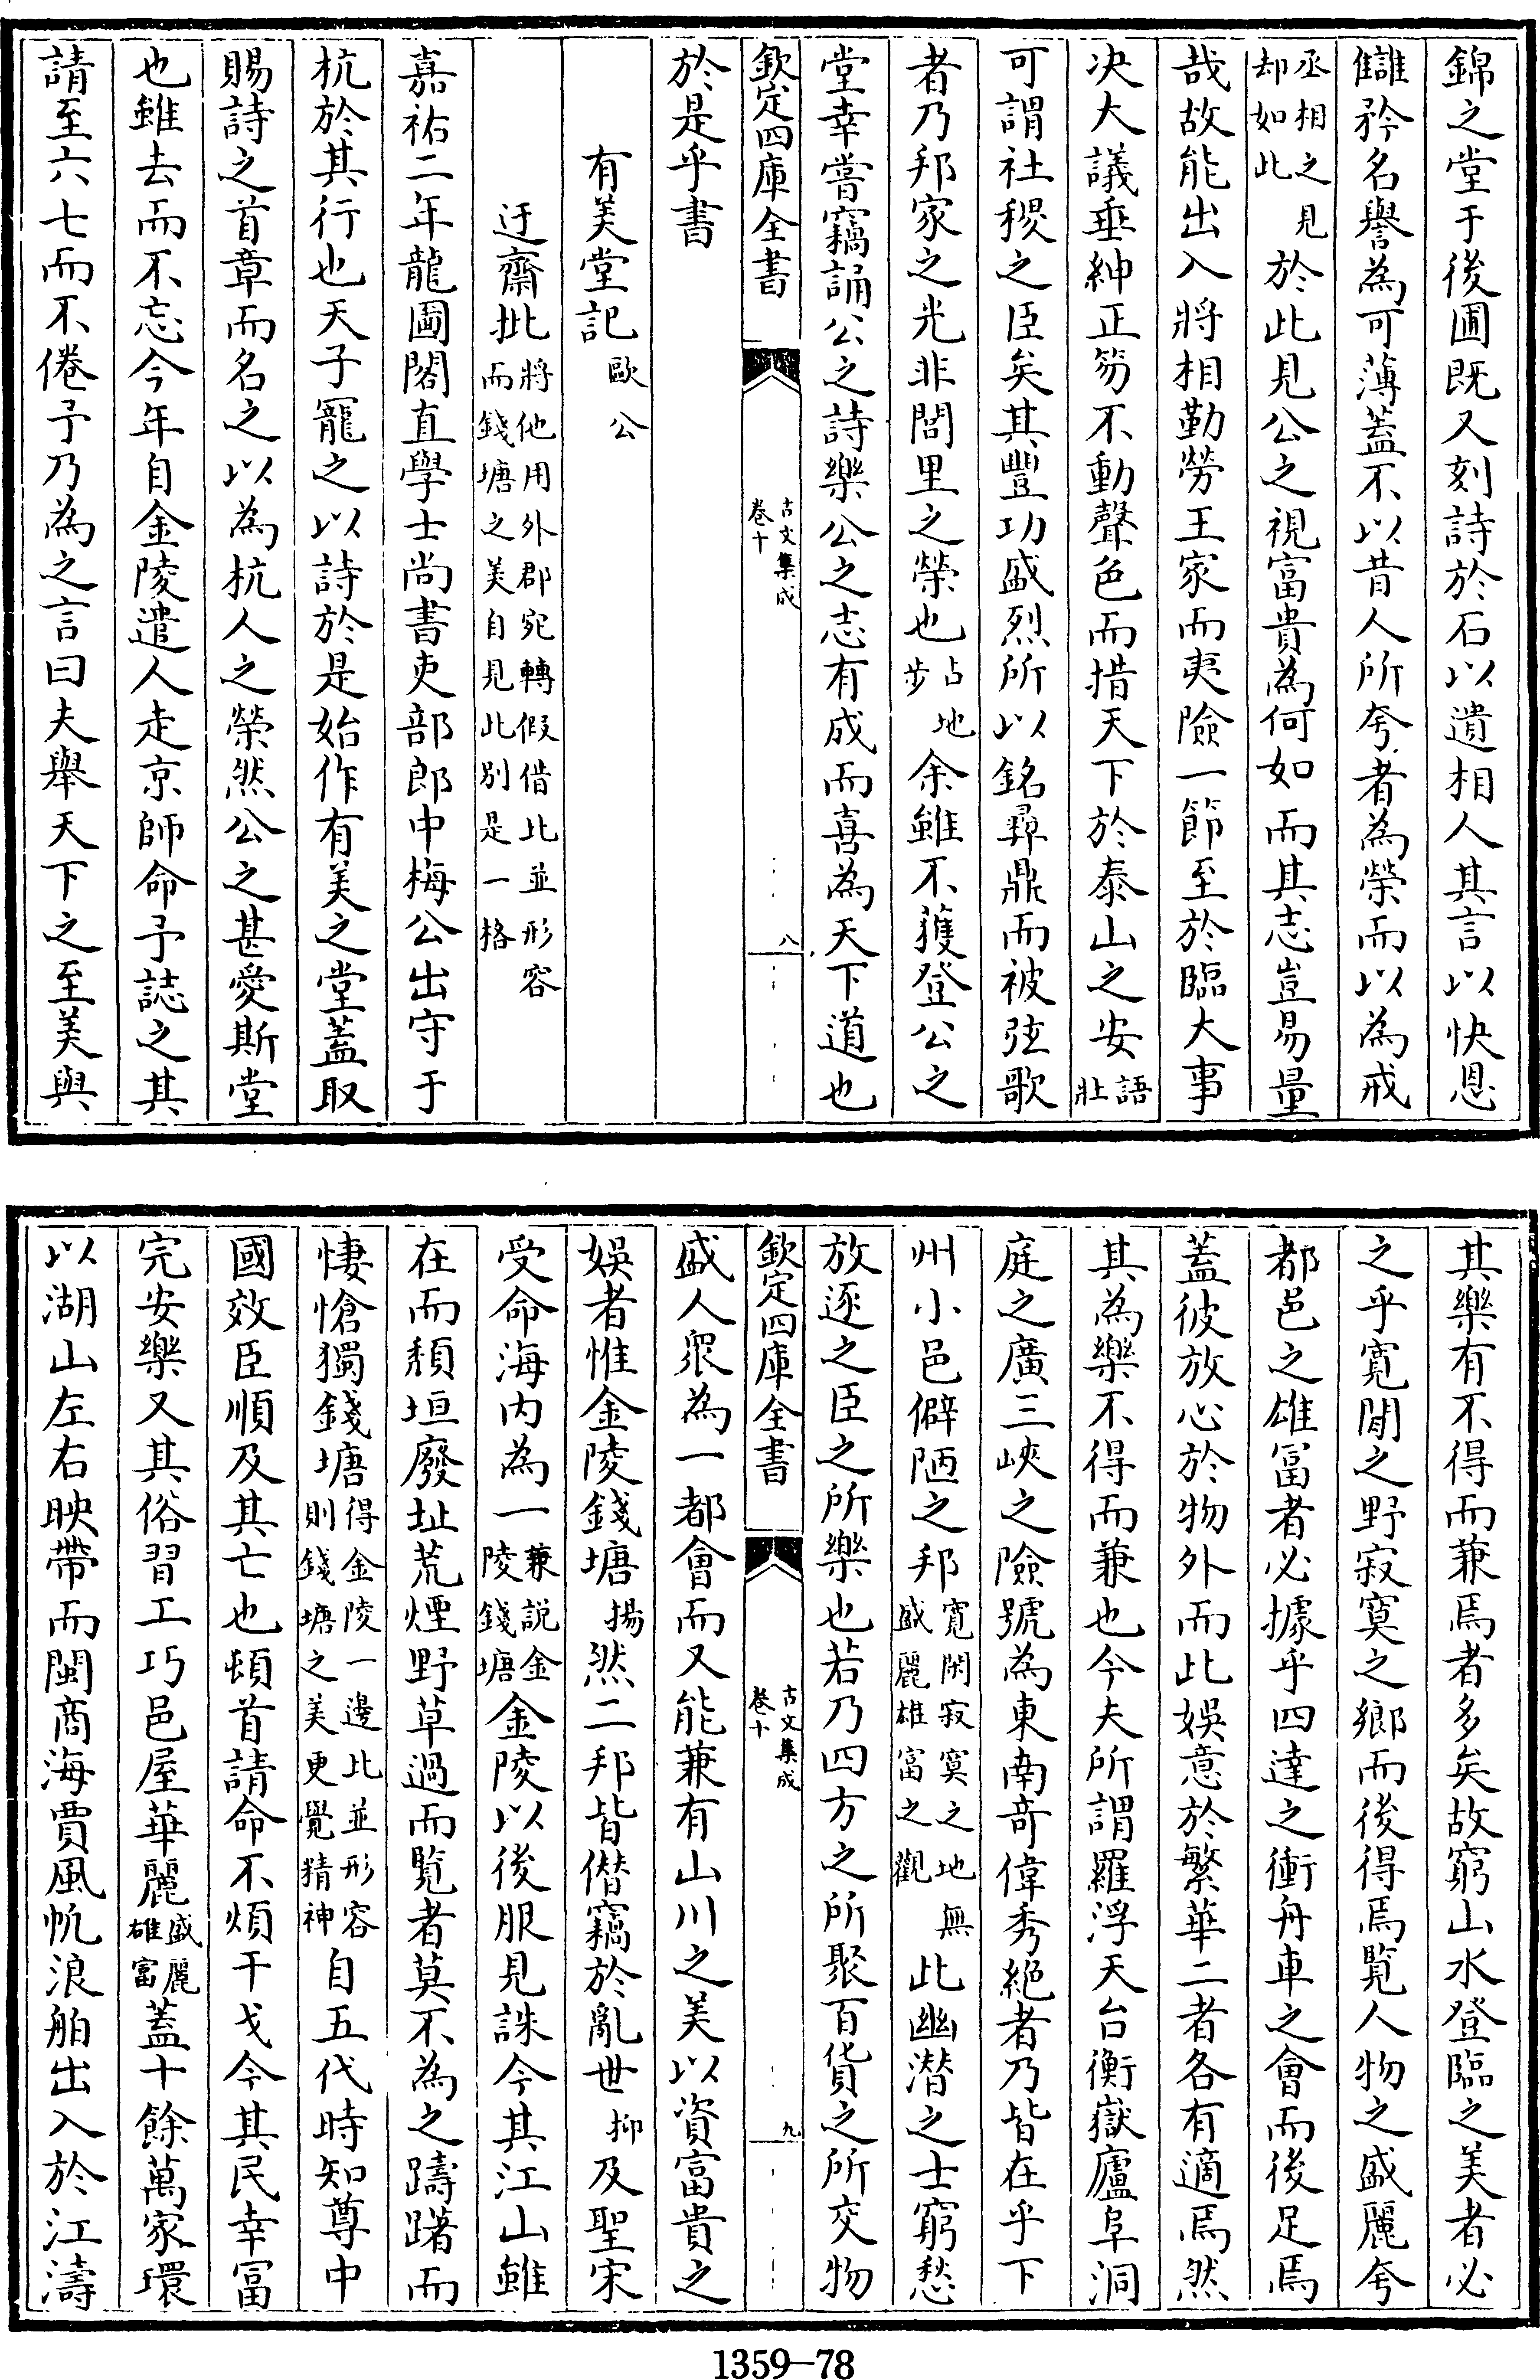 錦之堂于後圃既又刻詩於石以遺相人其言以快恩
讎矜名譽為可薄蓋不以昔人所夸者為榮而以為戒
丞相之見却如此於此見公之視富貴為何如而其志豈易量
哉故能出入將相勤勞王家而夷險一節至於臨大事
决大議垂紳正笏不動聲色而措天下於泰山之安語壯
可謂社稷之臣矣其豐功盛烈所以銘彛鼎而被弦歌
者乃邦家之光非閭里之榮也占地步余雖不獲登公之
堂幸嘗竊誦公之詩樂公之志有成而喜為天下道也
欽定四庫全書
古文集成
卷十
八
於是乎書
有美堂記歐公
迂齋批將他用外郡宛轉假借比並形容而錢塘之美自見此別是一格
嘉祐二年龍圖閣直學士尚書吏部郎中梅公出守于
杭於其行也天子寵之以詩於是始作有美之堂蓋取
賜詩之首章而名之以為杭人之榮然公之甚愛斯堂
也雖去而不忘今年自金陵遣人走京師命予誌之其
請至六七而不倦予乃為之言曰夫舉天下之至美與
其樂有不得而兼焉者多矣故窮山水登臨之美者必
之乎寛閒之野寂寞之鄉而後得焉覧人物之盛麗夸
都邑之雄富者必據乎四達之衝舟車之會而後足焉
蓋彼放心於物外而此娛意於繁華二者各有適焉然
其為樂不得而兼也今夫所謂羅浮天台衡嶽廬阜洞
庭之廣三峽之險號為東南竒偉秀絕者乃皆在乎下
州小邑僻陋之邦寛閑寂寞之地無盛麗雄富之觀此幽潜之士窮愁
放逐之臣之所樂也若乃四方之所聚百貨之所交物
欽定四庫全書
古文集成
卷十
九
盛人衆為一都會而又能兼有山川之美以資富貴之
娛者惟金陵錢塘揚然二邦皆僭竊於亂世抑及聖宋
受命海内為一兼說金陵錢塘金陵以後服見誅今其江山雖
在而頽垣廢址荒煙野草過而覧者莫不為之躊躇而
悽愴獨錢塘得金陵一邊比並形容則錢塘之美更覺精神自五代時知尊中
國效臣順及其亡也頓首請命不煩干戈今其民幸富
完安樂又其俗習工巧邑屋華麗盛麗雄富蓋十餘萬家環
以湖山左右映帶而閩商海賈風帆浪舶出入於江濤
1359—78